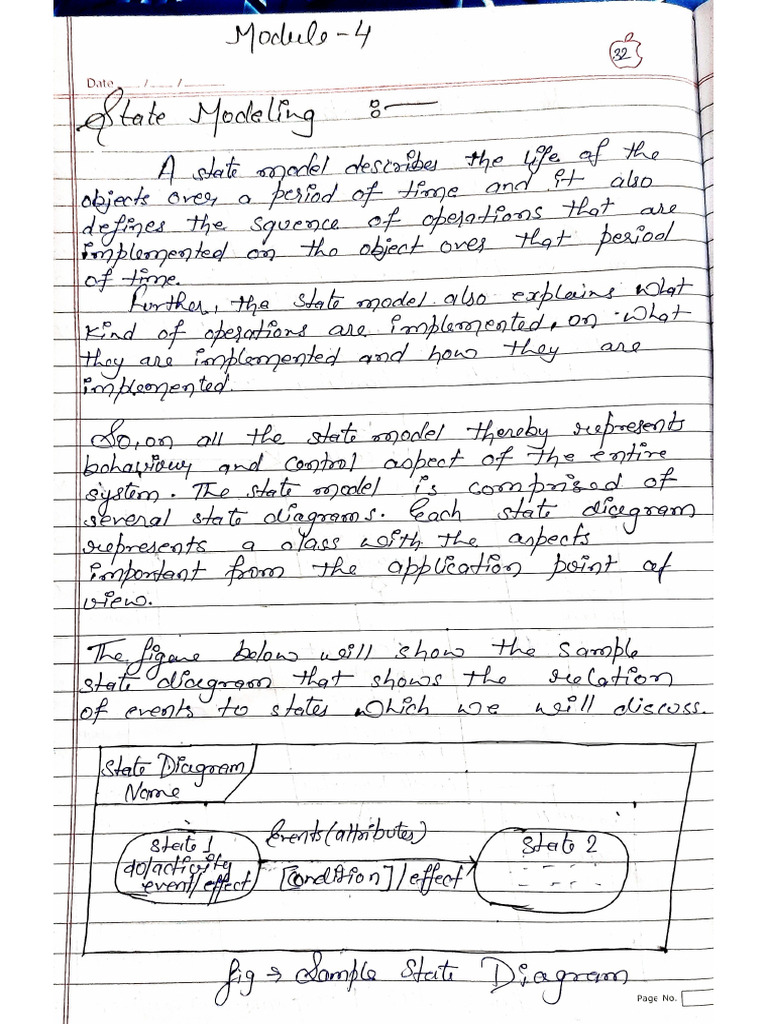 Module-4
32
Date ___/___/______
State Modeling :—
A state model describes the life of the
objects over a period of time and it also
defines the squence of operations that are
implemented on the object over that period
of time.
Further, the state model also explains what
kind of operations are implemented, on what
they are implemented and how they are
implemented.
So, on all the state model thereby represents
behaviour and control aspect of the entire
system. The state model is comprised of
several state diagrams. Each state diagram
represents a class with the aspects
important from the application point of
view.
The figure below will show the sample
state diagram that shows the relation
of events to states which we will discuss.
State Diagram
Name
Events(attributes)
State 1
State 2
do/activity
event/effect
[Condition]/effect
fig → Sample State Diagram
Page No.